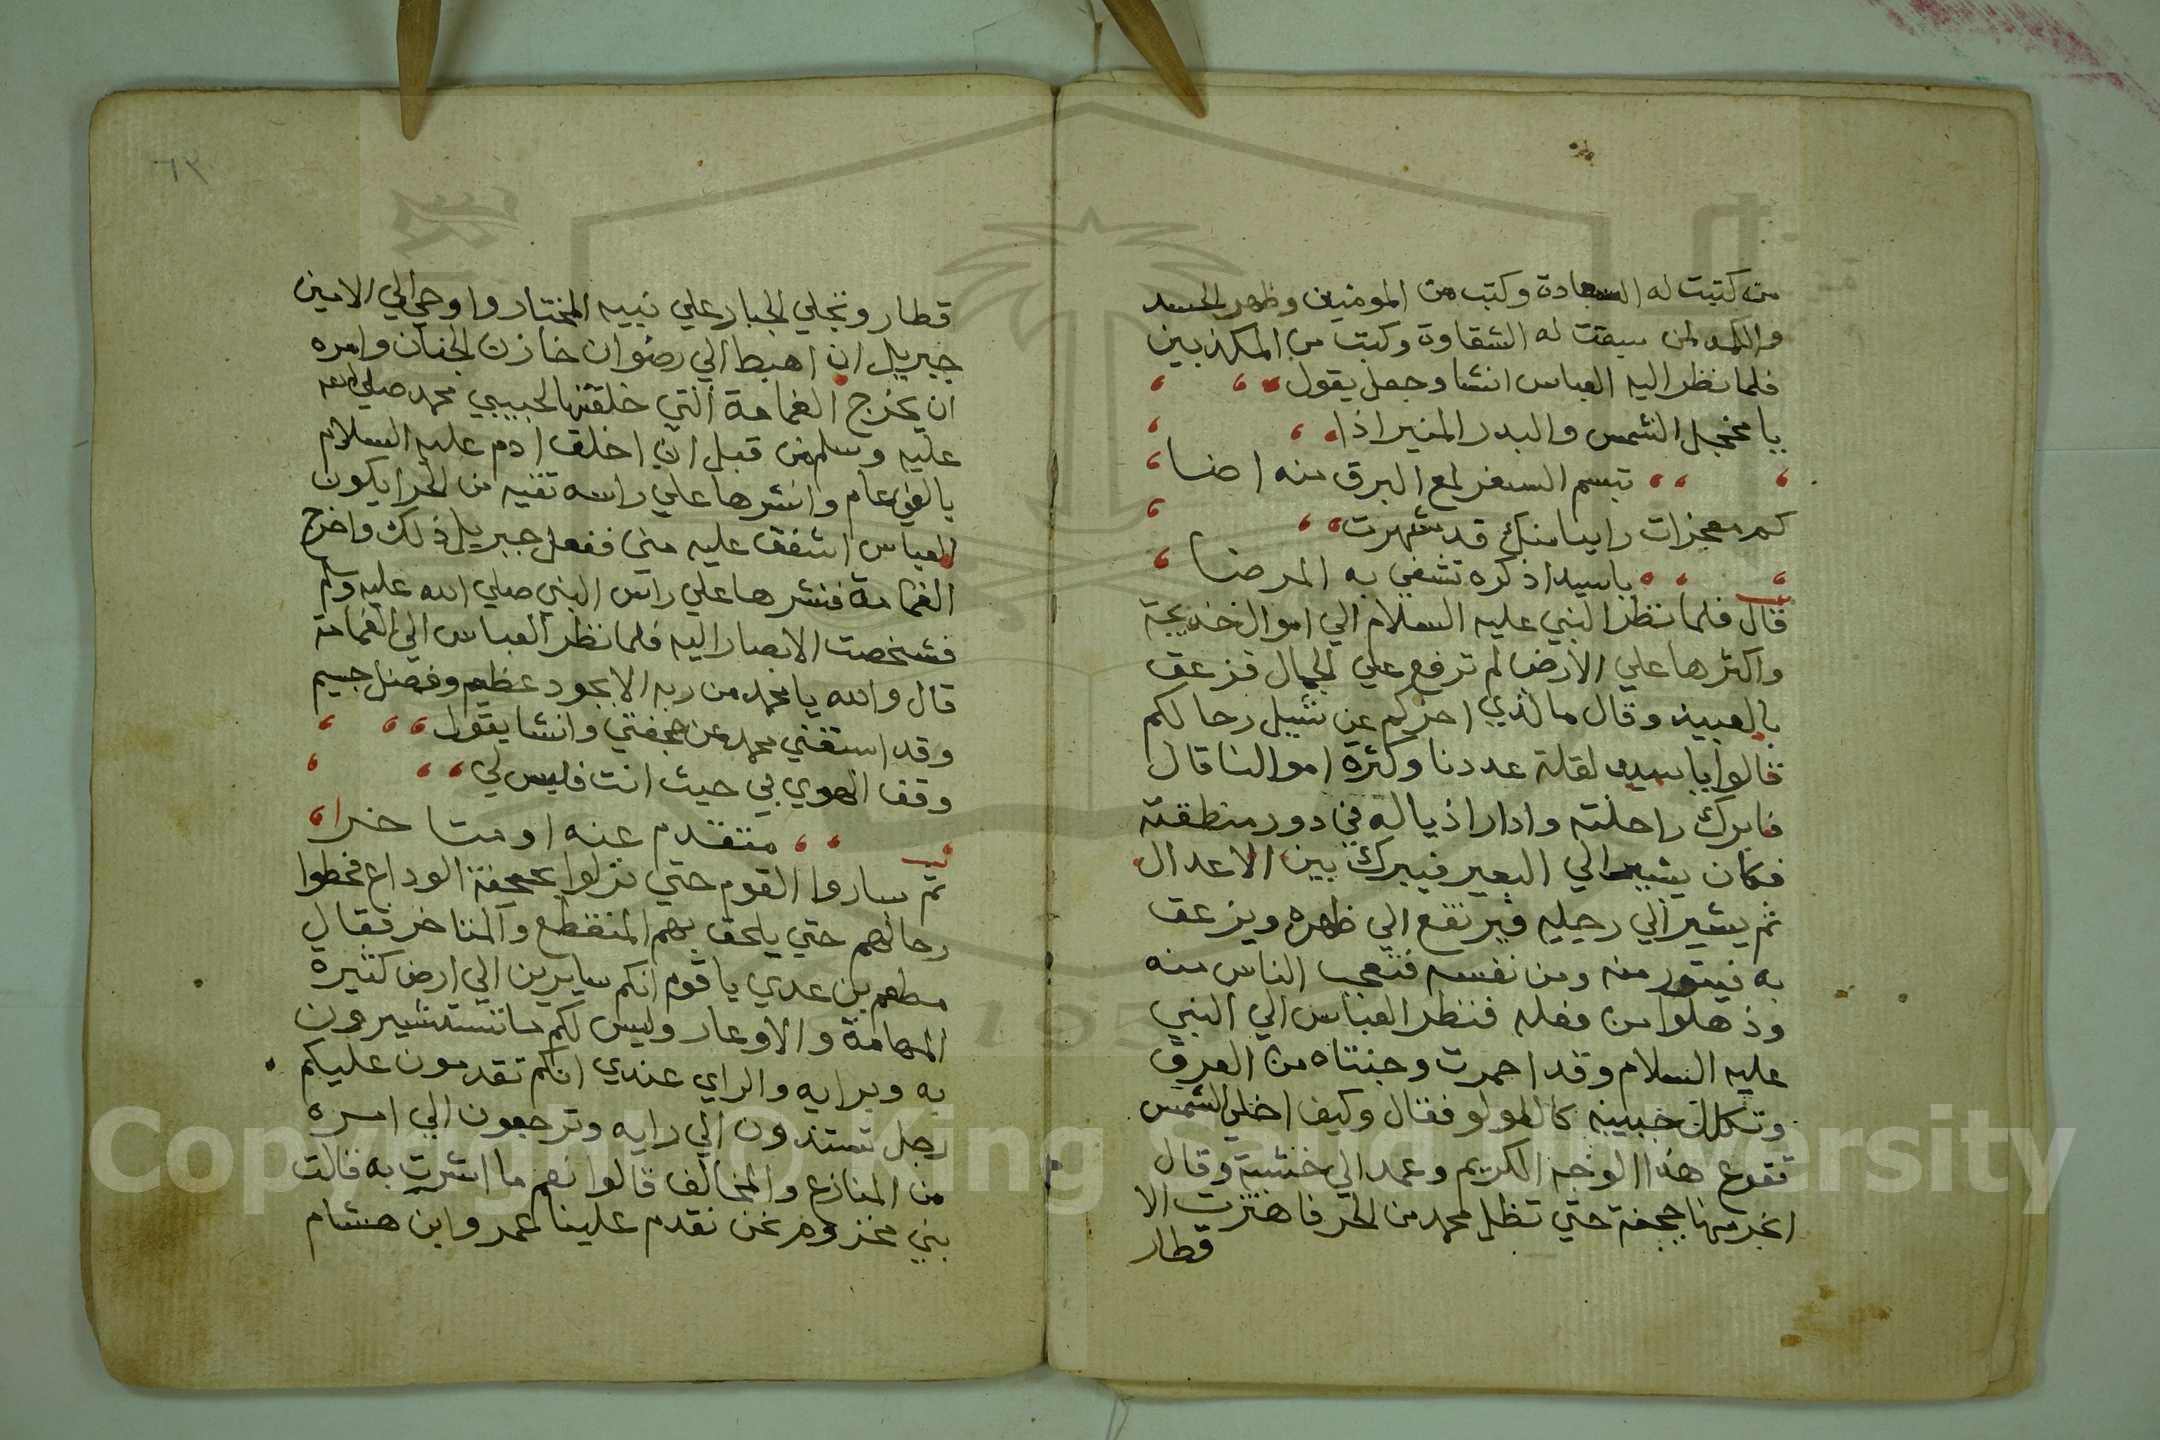 من كتبت له السعادة وكتب من المومنين وظهر الحسد
والكمد لمن سبقت له الشقاوة وكتب من المكذبين
فلما نظر اليه العباس انشا وجعل يقول
يا مخجل الشمس والبدر المنير اذا
تبسم السغر لمع البرق منه اضا
كم معجزات راينا منك قد شهرت
يا سيدا ذكره تشفي به المرضا
قال فلما نظر النبي عليه السلام الي اموال خديجة
واكثرها علي الارض لم ترفع علي الجمال فزعق
بالعبيد وقال ما لذي اخركم عن شيل رحالكم
قالوا يا سيدي لقلة عددنا وكثرة اموالنا قال
فابرك راحلته وادار اذياله في دور منطقته
فكان يشير الي البعير فيبرك بين الاعدال
ثم يشير الي رحيله فيرتفع الي ظهره ويزعق
به فيتور منه ومن نفسه فتعجب الناس منه
وذهلوا من فعله فنظر العباس الي النبي
عليه السلام وقد احمرت وجنتاه من العرق
وتكلل جبينه كالولو فقال وكيف اخلي الشمس
تقرع هذا الوجه الكريم وعمد الي خشبة وقال
اتخذ منها جحفة حتي تظل محمد من الحر فاهتزت الا
قطار
٦٢
قطار وتجلي الجبار علي نبيه المختار واوحي الي الامين
جبريل ان اهبط الي رضوان خازن الجنان وامره
ان يخرج الغمامة التي خلقتها لحبيبي محمد صلي الله
عليه وسلم من قبل ان اخلق ادم عليه السلام
بالفي عام وانشرها علي راسه تقيه من الحر ايكون
العباس اشفق عليه مني ففعل جبريل ذلك واخرج
الغمامة فنشرها علي راس النبي صلي الله عليه وسلم
فشخصت الابصار اليه فلما نظر العباس الي الغمامة
قال والله يا محمد من ربه الا بجود عظيم وفضل جسيم
وقد استغني محمد عن جحفتي وانشا يقول
وقف الهوي بي حيث انت فليس لي
متقدم عنه او متاخرا
ثم ساروا القوم حتي نزلوا بجحيفة الوداع فحطوا
رحالهم حتي يلحق بهم المنقطع والمتاخر فقال
مطعم بن عدي يا قوم انكم سايرين الي ارض كثيرة
المهامة والاوعار وليس لكم ما تستشيرون
به وبرايه والراي عندي انكم تقدمون عليكم
رجل تستندون الي رايه وترجعون الي امره
من المنازع والمخالف قالوا نعم ما اشرت به قالت
بني مخزوم نحن نقدم علينا عمرو ابن هشام
Copyright © King Saud University
1957